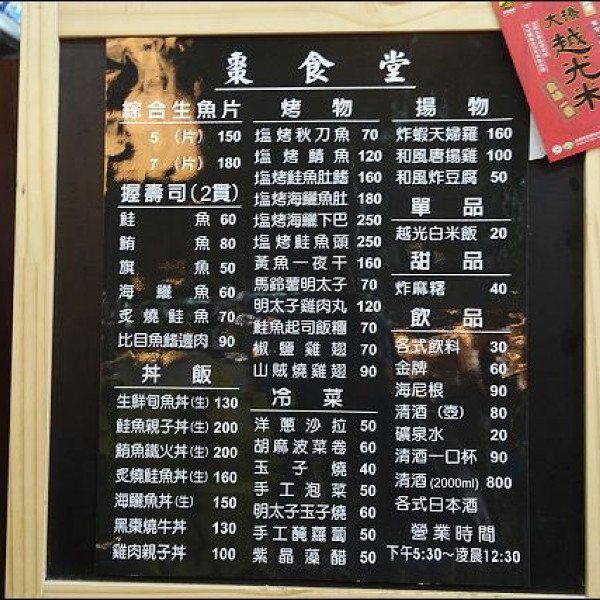 棗食堂
綜合生魚片
5 (片) 150
7 (片) 180
握壽司(2貫)
鮭魚 60
鮪魚 80
旗魚 50
海鱺魚 60
炙燒鮭魚 70
比目魚鰭邊肉 90
丼飯
生鮮旬魚丼(生) 130
鮭魚親子丼(生) 200
鮪魚鐵火丼(生) 200
炙燒鮭魚丼(生) 160
海鱺魚丼(生) 150
黑棗燒牛丼 130
雞肉親子丼 100
烤物
塩烤秋刀魚 70
塩烤鯖魚 120
塩烤鮭魚肚鰭 160
塩烤海鱺魚肚 180
塩烤海鱺下巴 250
塩烤鮭魚頭 250
黃魚一夜干 160
馬鈴薯明太子 70
明太子雞肉丸 120
鮭魚起司飯糰 70
椒鹽雞翅 70
山賊燒雞翅 90
冷菜
洋蔥沙拉 50
胡麻波菜卷 60
玉子燒 40
手工泡菜 50
明太子玉子燒 60
手工醃蘿蔔 50
紫晶藻醋 50
揚物
炸蝦天婦羅 160
和風唐揚雞 100
和風炸豆腐 50
單品
越光白米飯 20
甜品
炸麻糬 40
飲品
各式飲料 30
金牌 60
海尼根 90
清酒(壺) 80
礦泉水 20
清酒一口杯 90
清酒(2000ml) 800
各式日本酒
營業時間
下午5:30～凌晨12:30
大橋
越光米